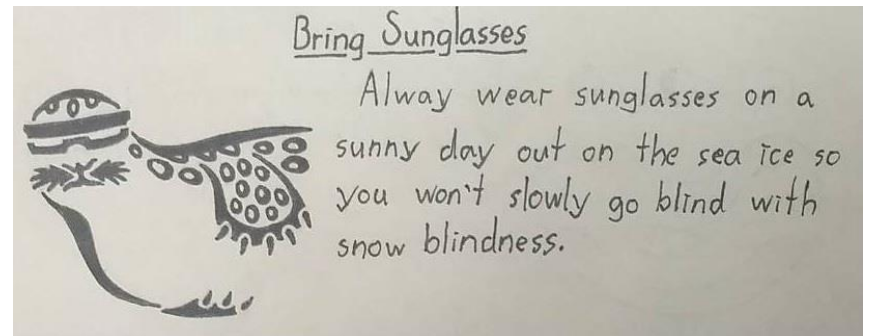 Bring Sunglasses
Alway wear sunglasses on a
sunny day out on the sea ice so
you won't slowly go blind with
snow blindness.